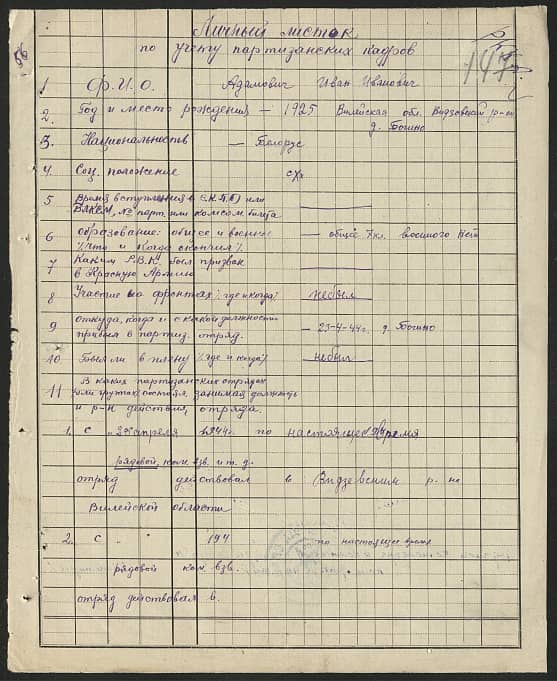 Личный листок
по учету партизанских кадров
147
1 Ф.И.О. Адамович Иван Иванович
2. Год и место рождения — 1925 Вилейская обл. Видзовский р-н
д. Богино
3. Национальность — Белорус
4. Соц. положение с/х
5 Время вступления в ВКП(б) или
ВЛКСМ, № парт. или комсом. билета
6 образование: общее и военное — общее 7 кл. военного нет
что и когда окончил
7 Каким Р.В.К. был призван
в Красную Армию
8 Участие на фронтах где и когда небыл
9 откуда, когда и с какой должности
прибыл в партиз. отряд. — 25-4-44г. д. Богино
10 Был ли в плену где и когда небыл
11 В каких партизанских отрядах
или группах состоял, занимая должность
и р-н действия, отряда.
1. С апреля 1944г. по настоящее время
рядовой, ком. взв. и т. д.
отряд действовал в Видзевским р-не
Вилейской области
2. с " 194 по настоящее время
рядовой ком. взв.
отряд действовал в.